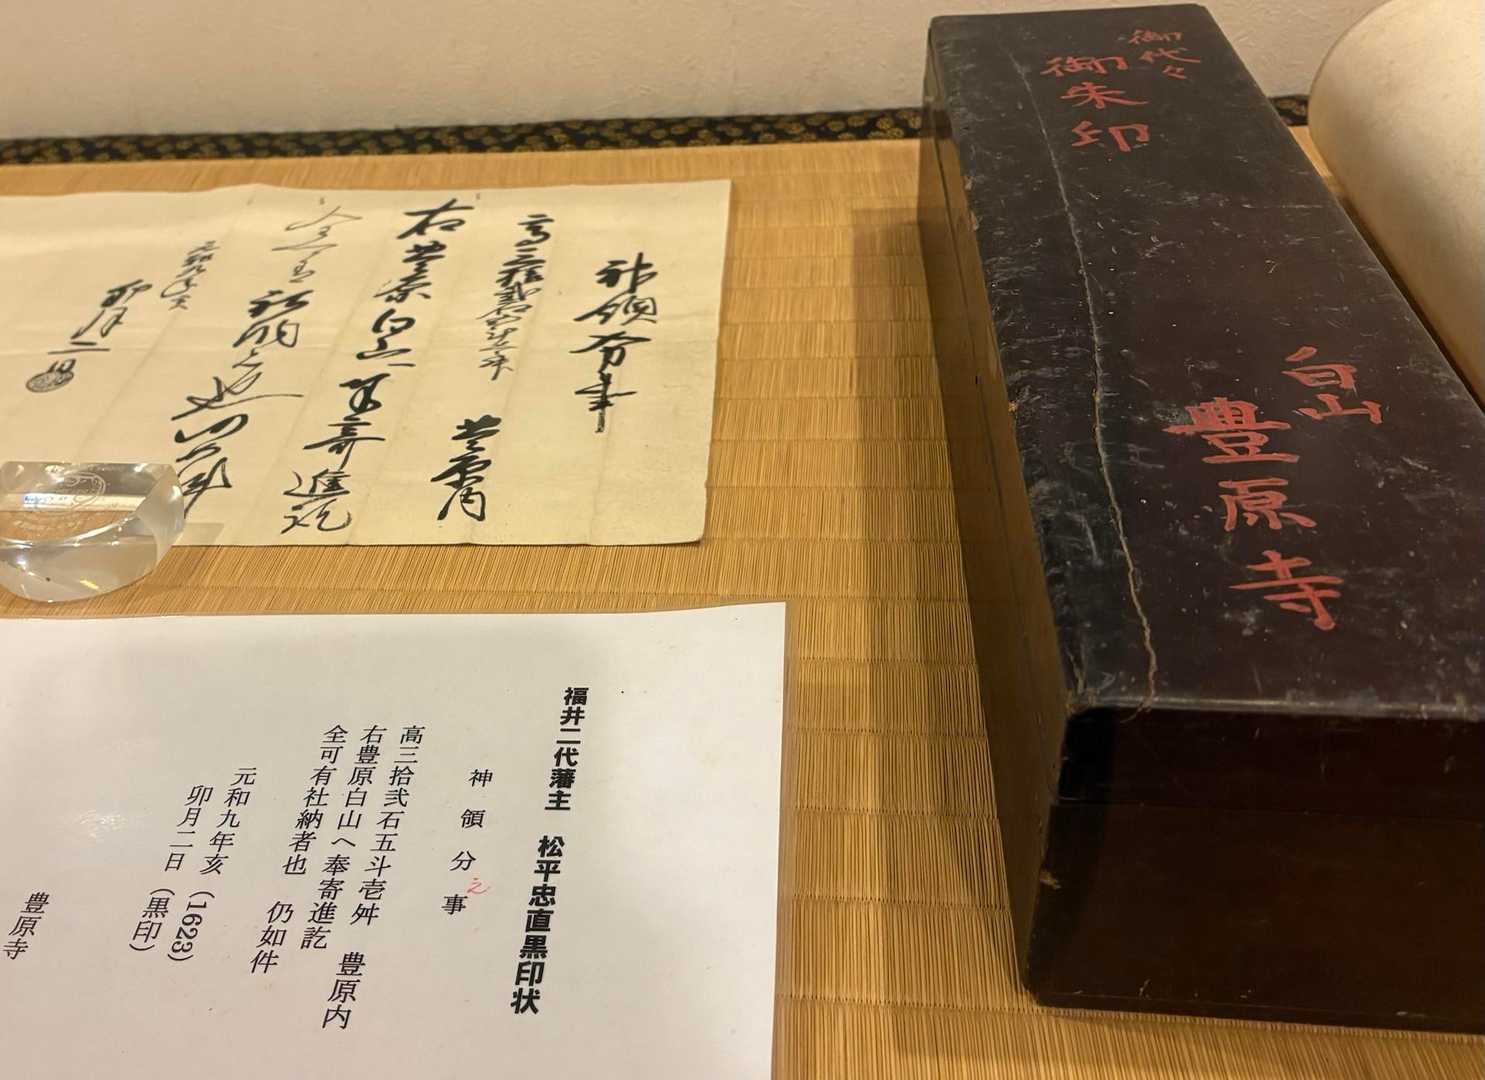 御代々
御朱印
白山
豊原寺
神領分事
高三拾弐石五斗壱舛 豊原内
右豊原白山へ奉寄進訖
全可有社納者也 仍如件
元和九年亥
卯月二日
福井二代藩主 松平忠直黒印状
神領分事
え
高三拾弐石五斗壱舛 豊原内
右豊原白山へ奉寄進訖
全可有社納者也 仍如件
元和九年亥（1623）
卯月二日（黒印）
豊原寺